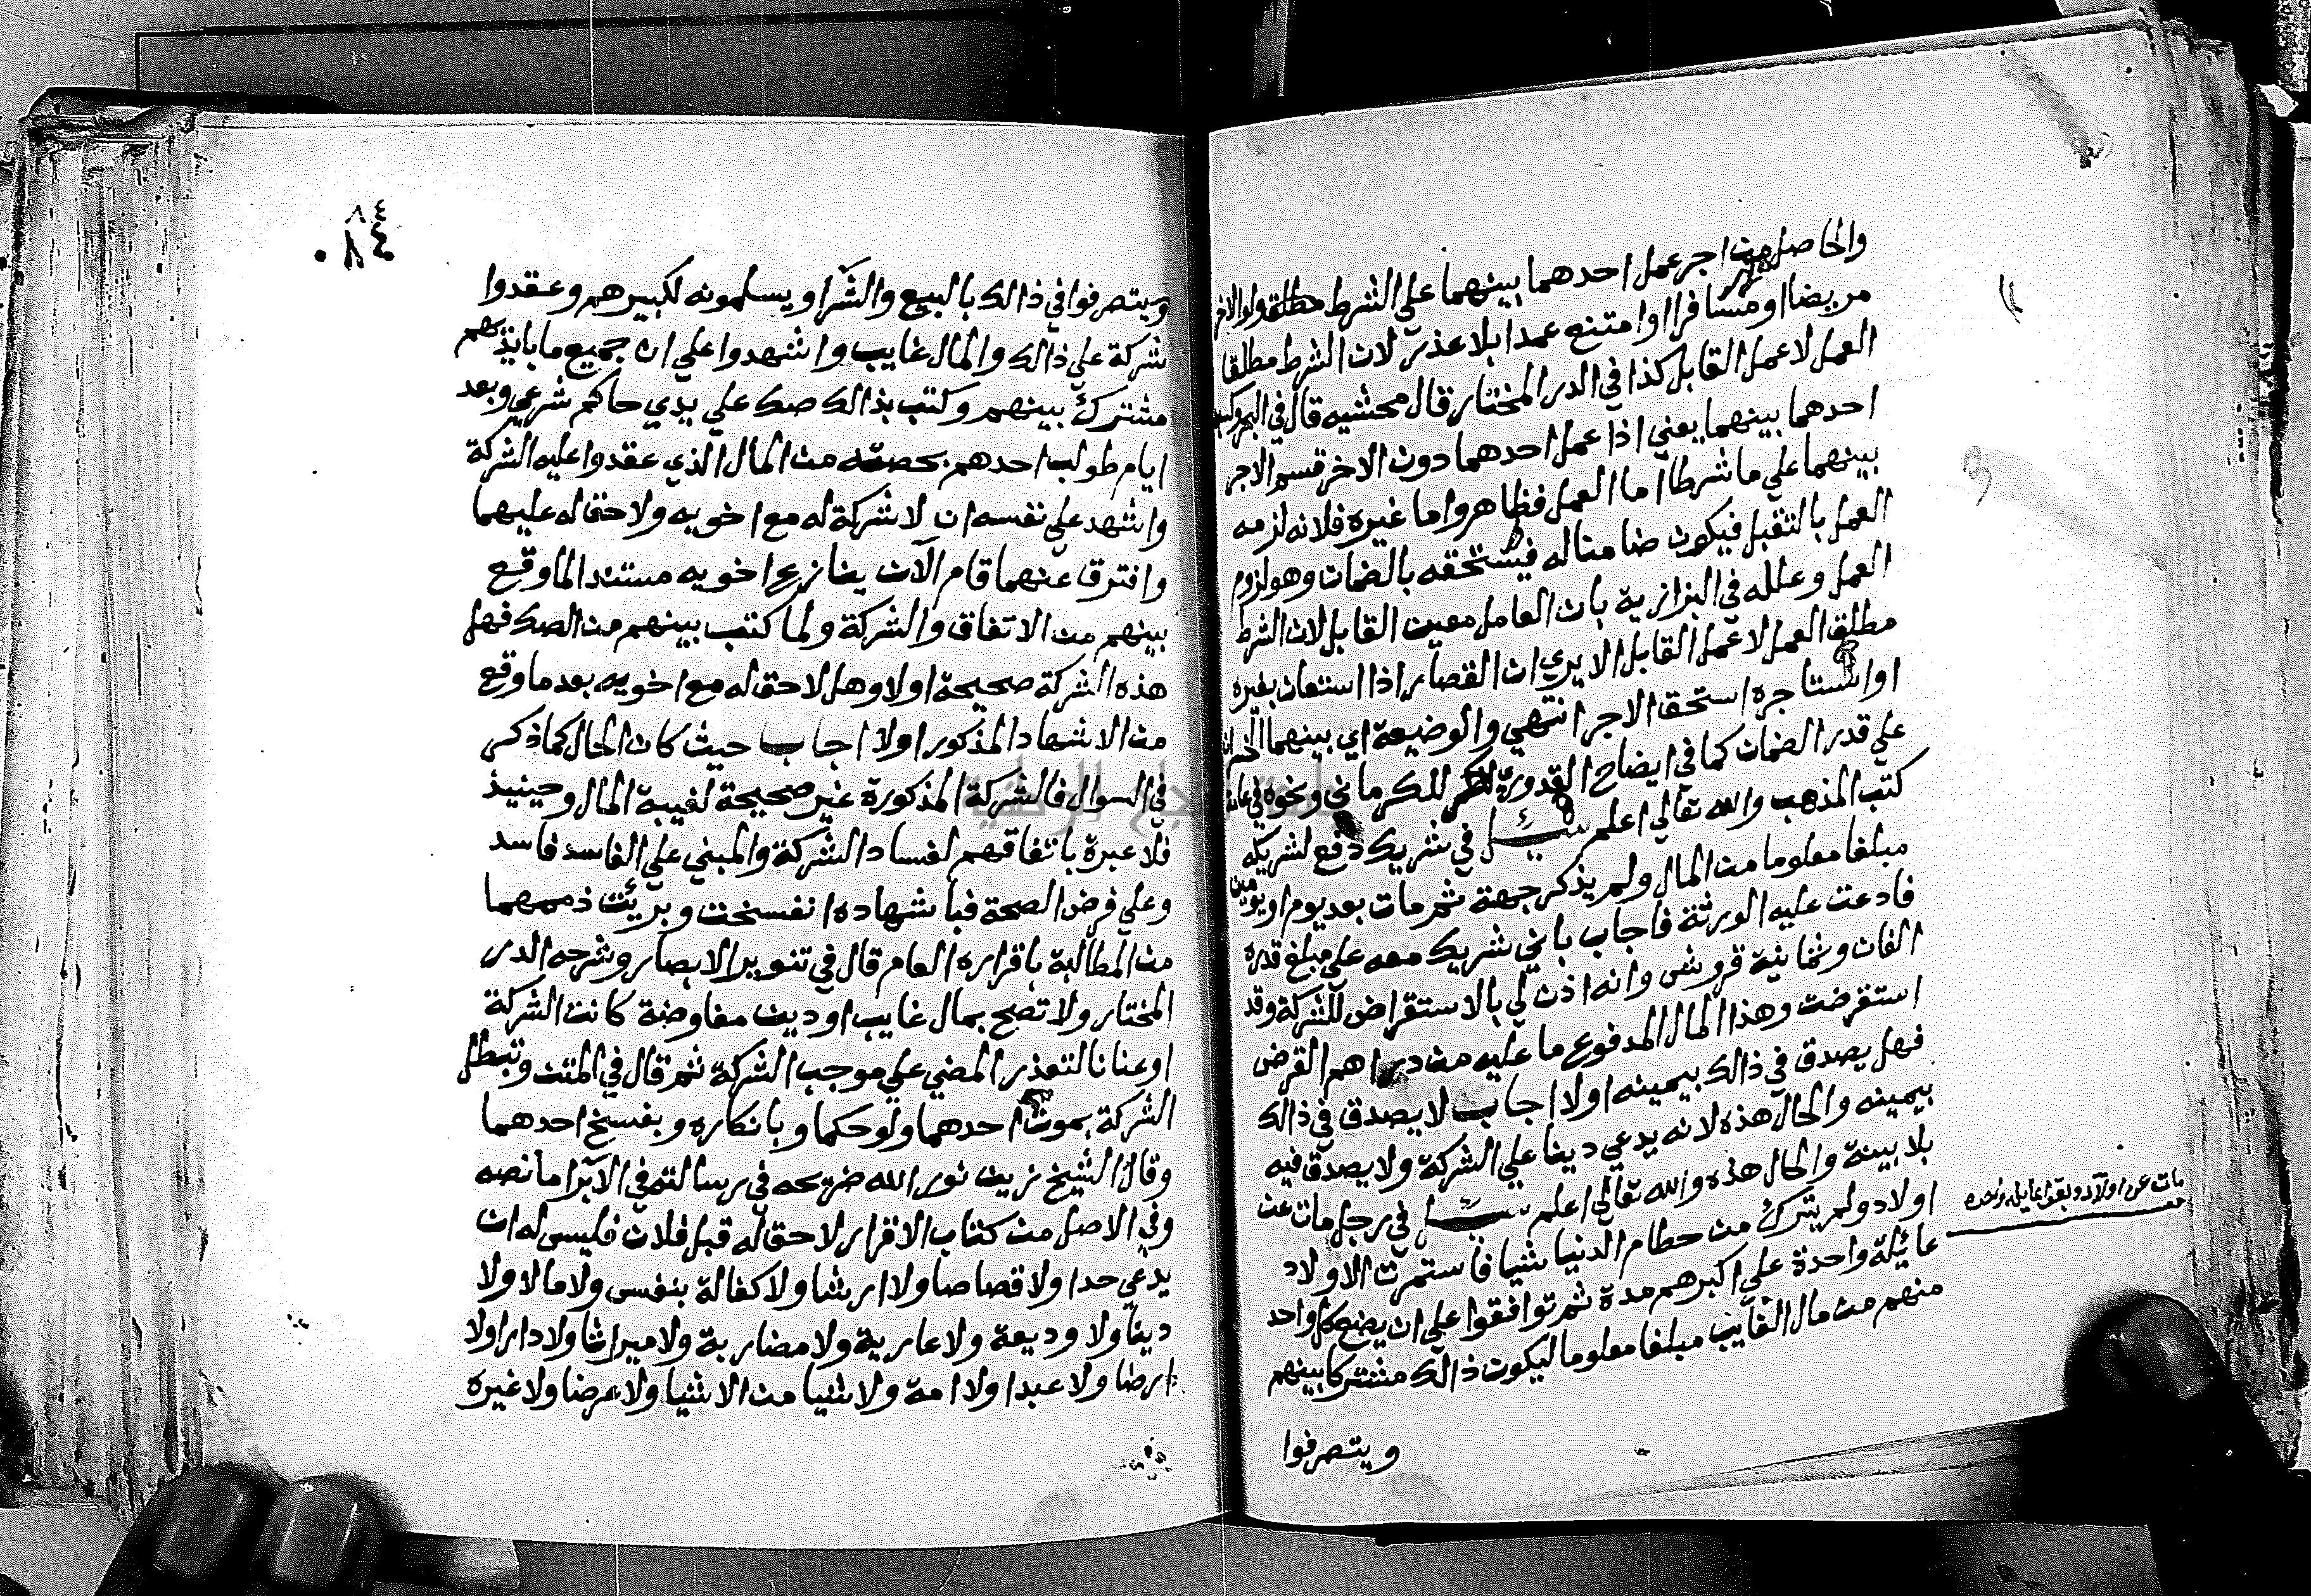 والحاصل من اجر عمل احدهما بينهما على الشرط مطلقا ولو الاخر
مريضا او مسافرا او امتنع عمدا بلا عذر لان الشرط مطلقا
العمل لا عمل القابل كذا في الدر المختار قال محشيه قال في البحر وكسب
احدهما بينهما يعني اذا عمل احدهما دون الاخر قسم الاجر
بينهما على ما شرطا اما العمل فظاهر واما غيره فلانه لزمه
العمل بالتقبل فيكون ضامنا له فيستحقه بالضمان وهو لزوم
العمل وعلله في البزازية بان العامل معين القابل لان الشرط
مطلق العمل لا عمل القابل الا يري ان القصار اذا استعان بغيره
او استاجره استحق الاجر انتهي والوضيعة اي بينهما
على قدر الضمان كما في ايضاح القدوري للكرماني ونحوه في
كتب المذهب والله تعالي اعلم سئل في شريك دفع لشريكه
مبلغا معلوما من المال ولم يذكر جهة ثم مات بعد يوم او يومين
فادعت عليه الورثة فاجاب باني شريك معه على مبلغ قدره
الفان وثمانية قروش وانه اذن لي بالاستقراض للشركة وقد
استقرضت وهذا المال المدفوع ما عليه من دراهم القرض
فهل يصدق في ذالك بيمينه اولا اجاب لا يصدق في ذالك
بيمينه والحال هذه لانه يدعي دينا على الشركة ولا يصدق فيه
بلا بينة والحال هذه والله تعالي اعلم سئل في رجل مات عن
اولاد ولم يترك من حطام الدنيا شيا فاستمرت الاولاد
عائلة واحدة على اكبرهم مدة ثم توافقوا على ان يضع كل واحد
منهم من مال الغايب مبلغا معلوما ليكون ذالك مشتركا بينهم
ويتصرفوا
مات عن اولاد وبقوا عايله واحده
٨٤
٨٤
ويتصرفوا في ذالك بالبيع والشرا ويسلمونه لكبيرهم وعقدوا
شركة على ذالك والمال غايب واشهدوا على ان جميع ما بايديهم
مشترك بينهم وكتب بذالك صك على يدي حاكم شرعي وبعد
ايام طولب احدهم بحصته من المال الذي عقدوا عليه الشركة
واشهد على نفسه ان لا شركة له مع اخويه ولا حق له عليهما
وافترق عنهما قام الآن ينازع اخويه مستندا لما وقع
بينهم من الاتفاق والشركة ولما كتب بينهم من الصك فهل
هذه الشركة صحيحة اولا وهل لا حق له مع اخويه بعد ما وقع
من الاشهاد المذكور اولا اجاب حيث كان الحال كما ذكر
في السوال فالشركة المذكورة غير صحيحة لغيبة المال وحينيذ
فلا عبرة باتفاقهم لفساد الشركة والمبني على الفاسد فاسد
وعلي فرض الصحة فباشهاده انفسخت وبرئت ذممهما
من المطالبة باقراره العام قال في تنوير الابصار وشرحه الدر
المختار ولا تصح بمال غايب او دين مفاوضة كانت الشركة
او عنانا لتعذر المضي على موجب الشركة ثم قال في المتن وتبطل
الشركة بموت احدهما ولو حكما وبانكاره وبفسخ احدهما
وقال الشيخ زين نور الله ضريحه في رسالته في الآبرا ما نصه
وفي الاصل من كتاب الاقرار لا حق له قبل فلان فليس له ان
يدعي حدا ولا قصاصا ولا ارشا ولا كفالة بنفس ولا مالا ولا
دينا ولا وديعة ولا عارية ولا مضاربة ولا ميراثا ولا دارا ولا
ارضا ولا عبدا ولا امة ولا شيا من الاشيا ولا عرضا ولا غيره